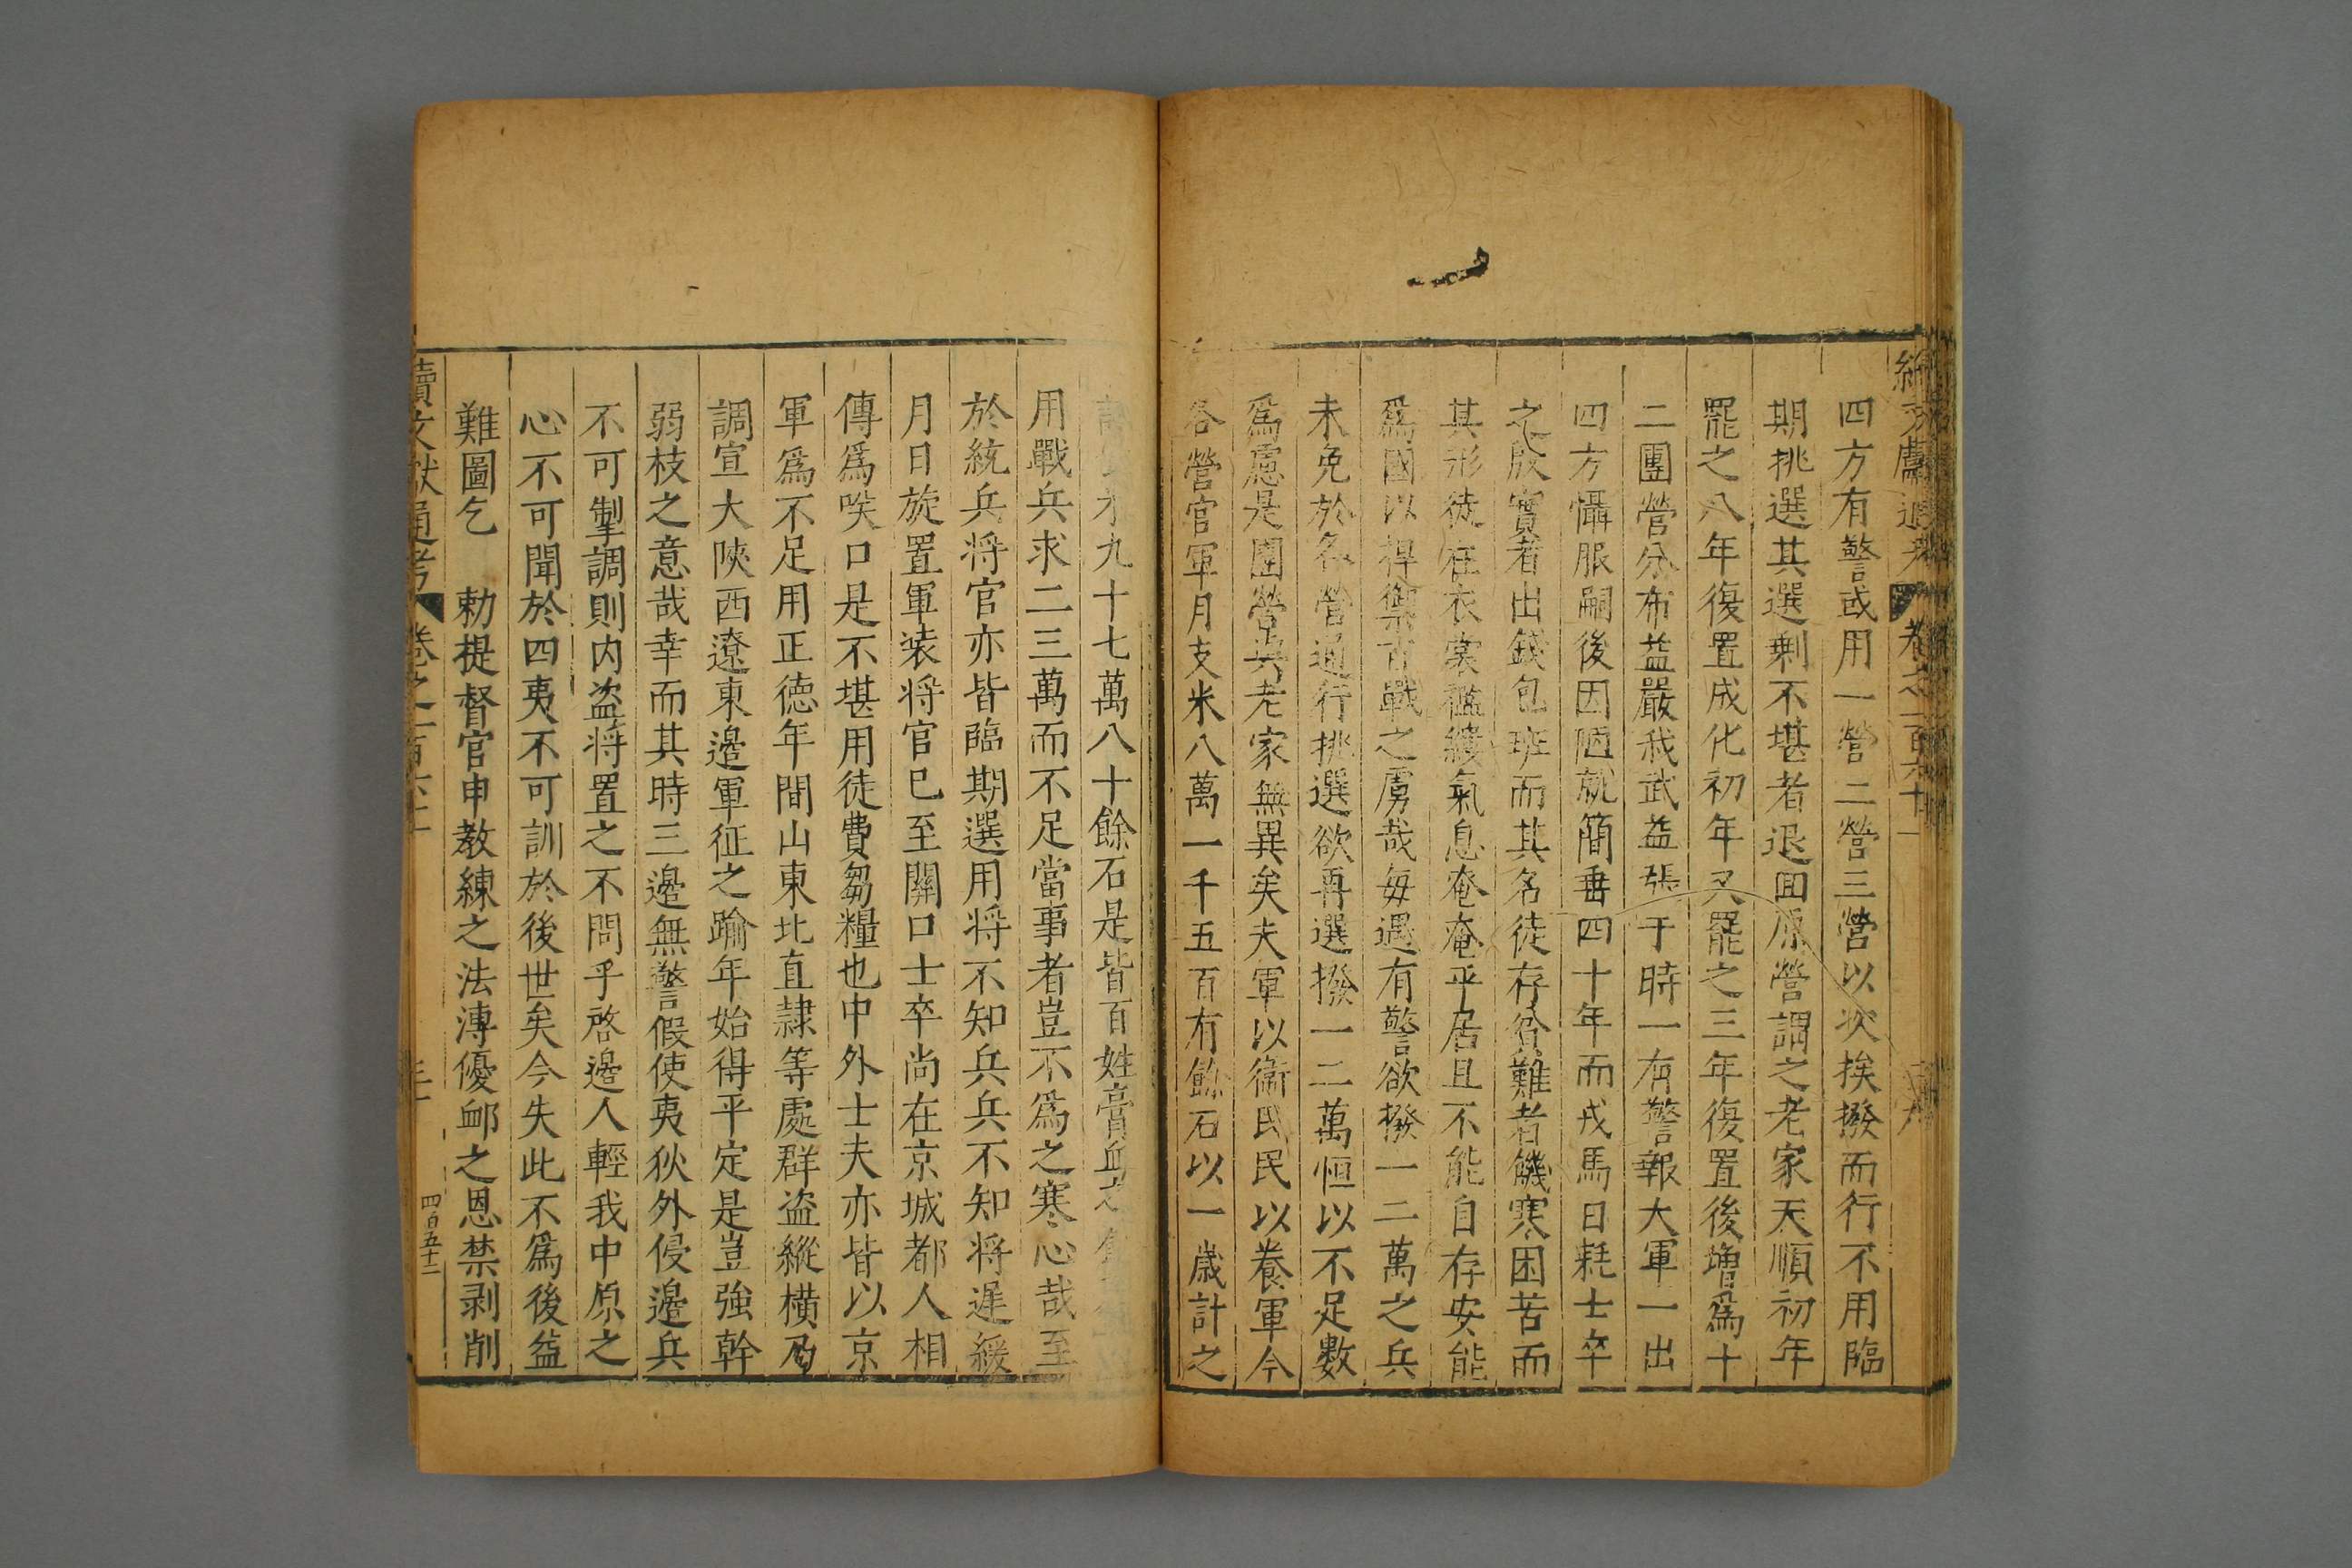 續文獻通考 卷之一百六十一
四方有警或用一營二營三營以次挨撥而行不用臨
期挑選其選剩不堪者退回原營謂之老家天順初年
罷之八年復置成化初年又罷之三年復置後增爲十
二團營分布益嚴我武益張于時一有警報大軍一出
四方懾服嗣後因陋就簡垂四十年而戎馬日耗士卒
之殷實者出錢包班而其名徒存貧難者饑寒困苦而
其形徒在衣裳襤縷氣息奄奄平居且不能自存安能
爲國以捍禦百戰之虜哉每遇有警欲撥一二萬之兵
未免於各營通行挑選欲再選撥一二萬恒以不足數
爲慮是團營與老家無異矣夫軍以衞民民以養軍今
各營官軍月支米八萬一千五百有餘石以一歲計之
九十七萬八十餘石是皆百姓膏血
用戰兵求二三萬而不足當事者豈不爲之寒心哉至
於統兵將官亦皆臨期選用將不知兵兵不知將遲緩
月日旋置軍装將官已至關口士卒尚在京城都人相
傳爲唉口是不堪用徒費芻糧也中外士夫亦皆以京
軍爲不足用正德年間山東北直隷等處群盗縱横乃
調宣大陝西遼東邊軍征之踰年始得平定是豈強幹
弱枝之意哉幸而其時三邊無警假使夷狄外侵邊兵
不可掣調則内盗將置之不問乎啓邊人輕我中原之
心不可聞於四夷不可訓於後世矣今失此不爲後益
難圖乞 勅提督官申教練之法溥優邺之恩禁剥削
續文獻通考 卷之一百六十一
四百五十二